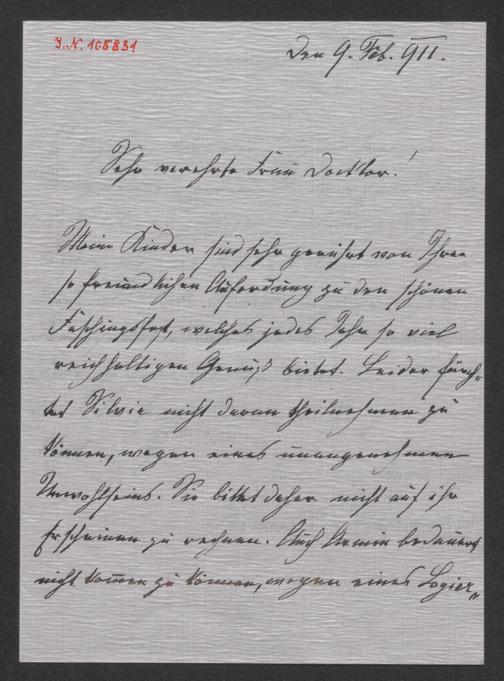 J. N. 165831
Den 9. Feb. 911.
Sehr verehrte Frau Docktor!
Meine Kinder sind sehr gerührt von Ihrer
so freundlichen Aufordrung zu den schönen
Faschingsfest, welches jedes Jahr so viel
reichhaltigen Genuß bietet. Leider fürch-
tet Silvia nicht daran theilnehmen zu
können, wegen eines unangenehmen
Unwohlseins. Sie bittet daher nicht auf ihr
Erscheinen zu rechnen. Auch Armin bedauert
nicht kommen zu können, wegen eines Logier„